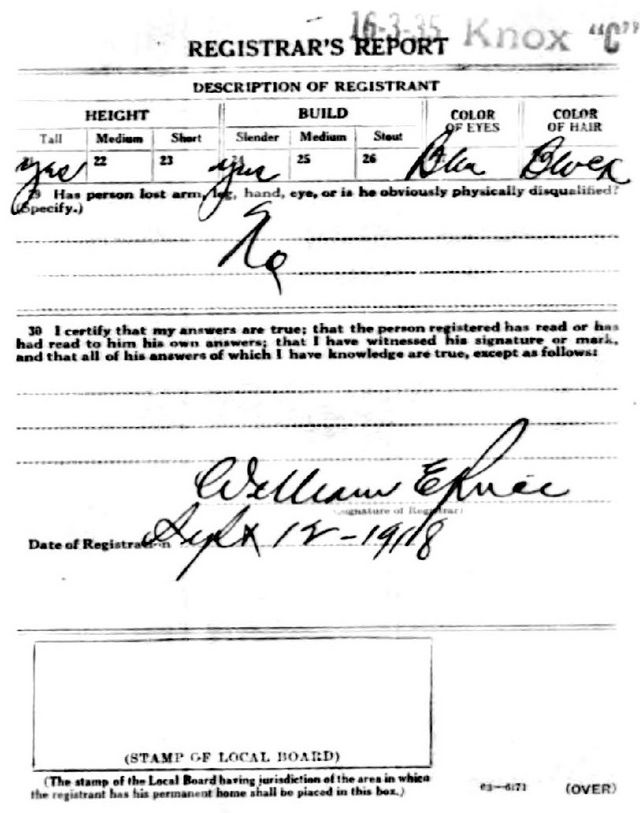 16-3-35 Knox "C"
REGISTRAR'S REPORT
DESCRIPTION OF REGISTRANT
HEIGHT BUILD COLOR OF EYES COLOR OF HAIR
Tall Medium Short Slender Medium Stout
yes 22 23 yes 25 26 Blue Black
29 Has person lost arm, leg, hand, eye, or is he obviously physically disqualified?
(Specify.)
No
30 I certify that my answers are true; that the person registered has read or has
had read to him his own answers; that I have witnessed his signature or mark,
and that all of his answers of which I have knowledge are true, except as follows:
William E
(Signature of Registrar)
Date of Registration Sept 12-1918
(STAMP OF LOCAL BOARD)
(The stamp of the Local Board having jurisdiction of the area in which
the registrant has his permanent home shall be placed in this box.)
03—6171 (OVER)